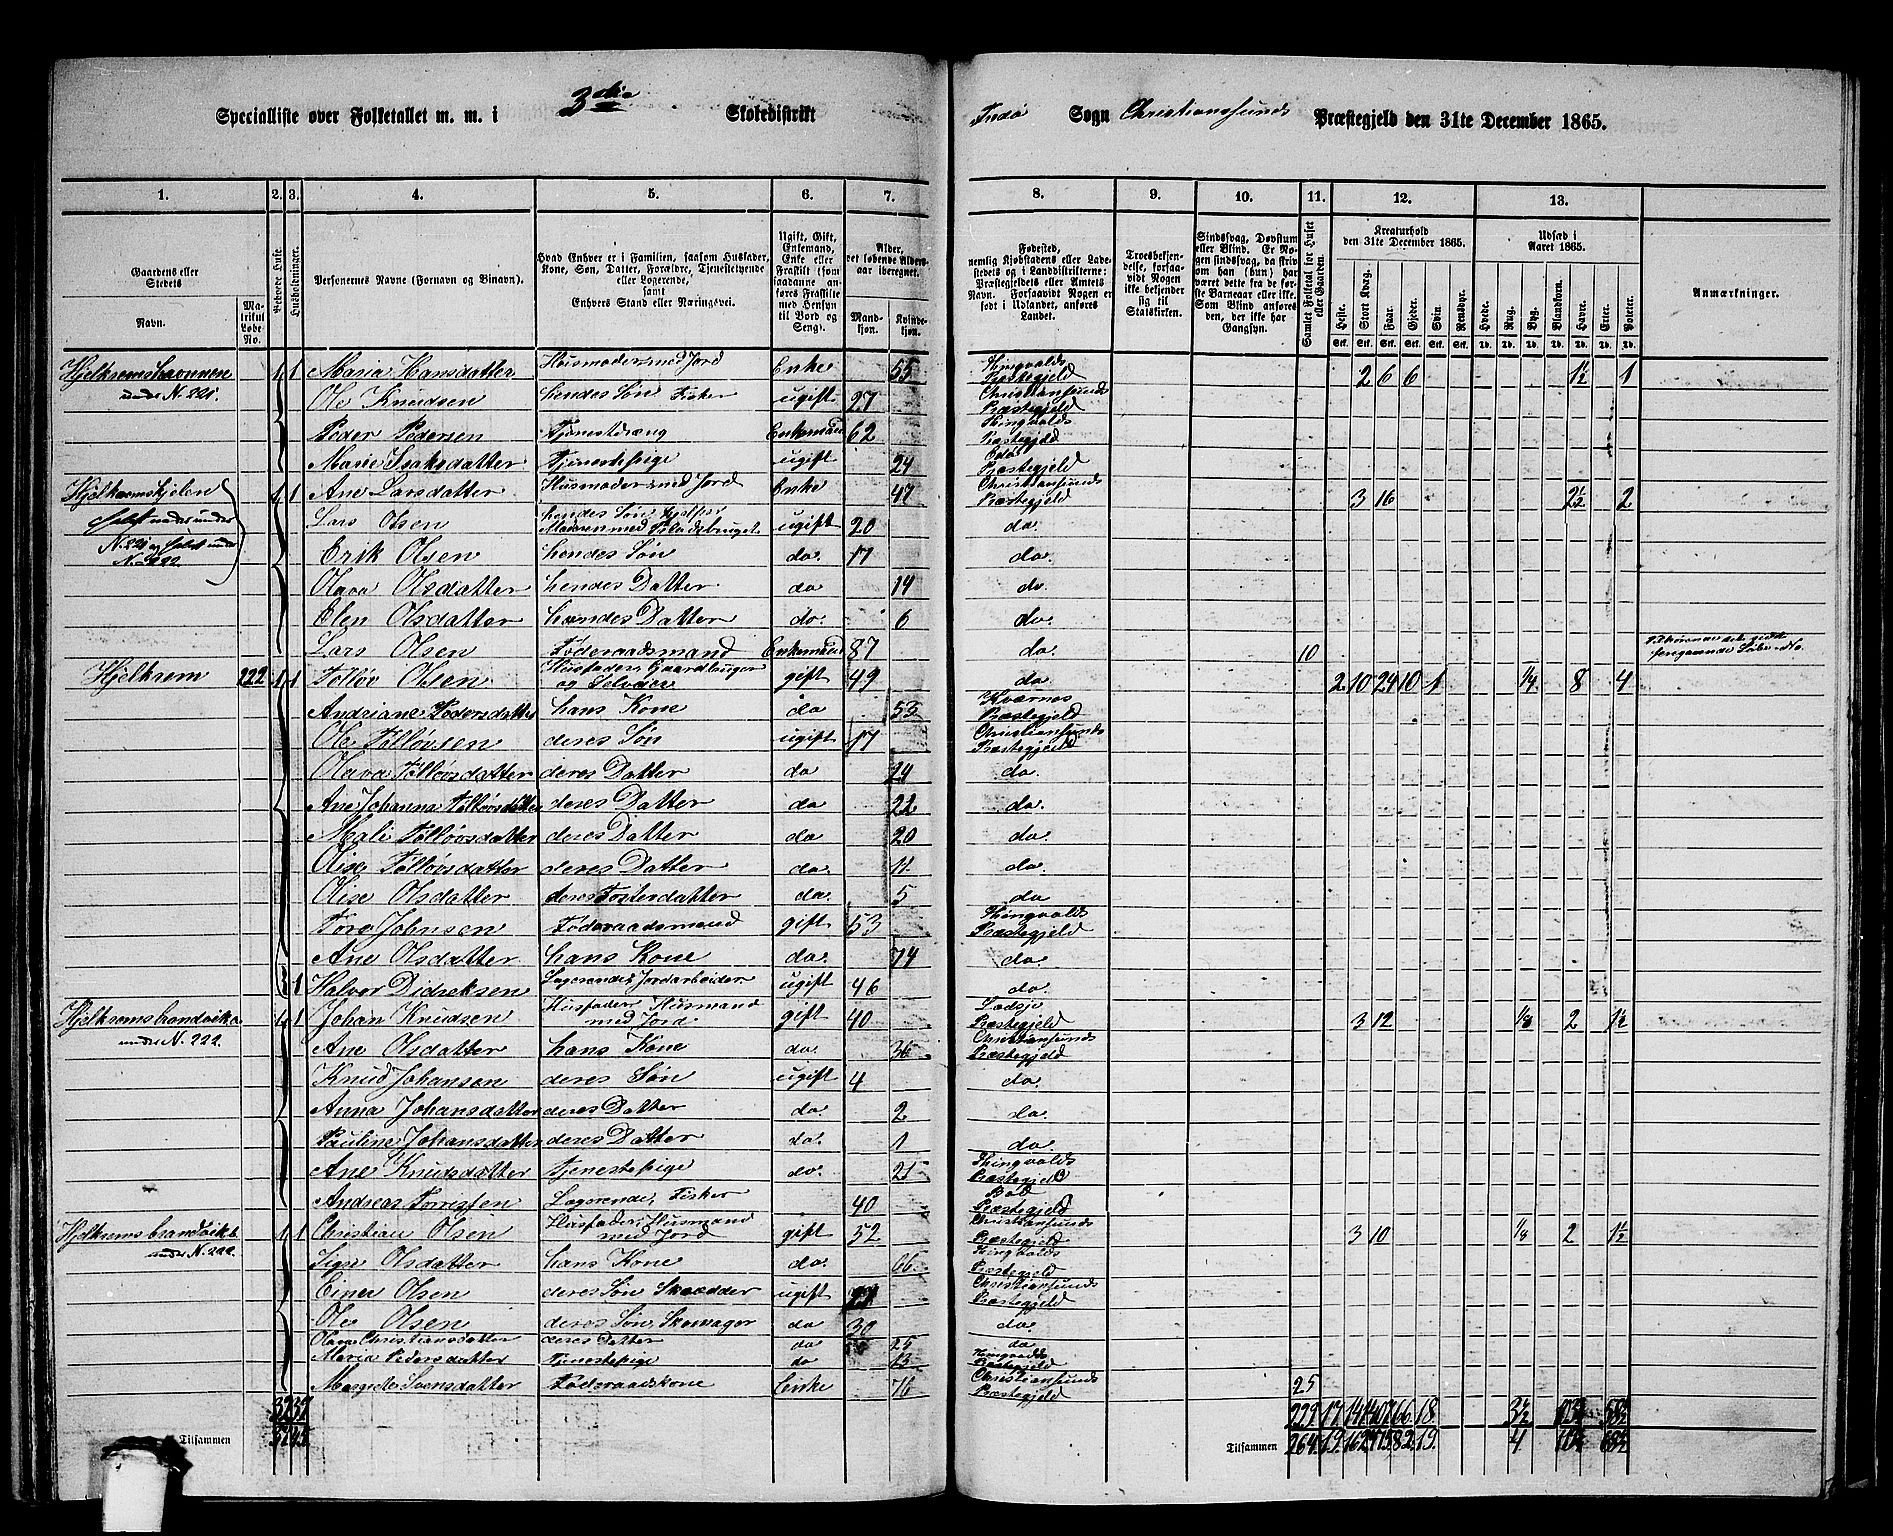 Specialliste over Folketallet m. m. i 3die Skoledistrikt
Sogn Christianssunds Præstegjeld den 31te December 1865.
1. 2. 3. 4. 5. 6. 7. 8. 9. 10. 11. 12. 13.
Gaardens eller Stedets
Navn.
Matrikul Løbe-No.
Beboede Huse.
Husholdninger.
Personernes Navne (Fornavn og Binavn).
Hvad Enhver er i Familien, saasom Husfader,
Kone, Søn, Datter, Forældre, Tjenestetyende
eller Logerende,
samt
Enhvers Stand eller Næringsvei.
Ugift, Gift,
Enkemand,
Enke eller
Fraskilt (som
saadanne anføres Fraskilte
med Hensyn
til Bord og
Seng).
Alder,
det løbende Aldersaar iberegnet.
Mandkjøn.
Kvindekjøn.
Fødested,
nemlig Kjøbstadens eller Ladestedets og i Landdistrikterne:
Præstegjeldets eller Amtets
Navn. Forsaavidt Nogen er
født i Udlandet, anføres
Landet.
Troesbekjendelse, forsaavidt Nogen
ikke bekjender
sig til
Statskirken.
Sindssvag, Døvstum
eller Blind. Er Nogen sindssvag, da skrives om han (hun) har
været dette fra de første Barneaar eller ikke.
Som Blind anføres
den, der ikke har
Gangsyn.
Samlet Folketal for Huset eller Gaarden.
Kreaturhold
den 31te December 1865.
Heste. Stort Kvæg. Faar. Gjeder. Svin. Rensdyr.
Udsæd i
Aaret 1865.
Hvede. Rug. Byg. Blandkorn. Havre. Erter. Poteter.
Anmærkninger.
Hjelkremshavnden 1 1 Maria Hansdatter Husmoder med Jord Enke 55 Thingvolds Præstegjeld 2 6 6 1½ 1
under N. 221. Ole Knudsen hendes Søn Fisker ugift 27 Christianssunds Præstegjeld
Peder Pedersen Tjenestdreng Enkemand 62 Thingvolds Præstegjeld
Marie Isaksdatter Tjenestepige ugift 24 Edø Præstegjeld
1 1 Ane Larsdatter Husmoder med Jord Enke 47 Christianssunds Præstegjeld 3 16 2½ 2
Lars Olsen hendes Søn hjelper Moderen med ugift 20 do.
N. 221 og N. 222 Erik Olsen hendes Søn do 17 do.
Olava Olsdatter hendes Datter do 14 do.
Elen Olsdatter hendes Datter do. 6 do.
Lars Olsen Føderaadsmand Enkemand 87 do. 10
Hjelkrem 222 1 1 Tolløv Olsen Husfader, Gaardbruger og Selveier gift 49 do. 2 10 24 10 1 ¼ 8 4
Andriane Pedersdatter hans Kone do 53 Kværnes Præstegjeld
Ole Tolløvsen deres Søn ugift 17 Christianssunds Præstegjeld
Olava Tolløvsdatter deres Datter do 24 do.
Ane Johanna Tolløvsdatter deres Datter do 22 do.
Mali Tolløvsdatter deres Datter do 20 do.
Olise Tolløvsdatter deres Datter do. 11. do.
Olise Olsdatter deres Fosterdatter do. 5 do
Tore Johnsen Føderaadsmand gift 53 Thingvolds Præstegjeld
Ane Olsdatter hans Kone do. 74 do.
1 Halvor Didreksen Logerende, Jordarbeider ugift 46 do.
Hjelkremsbrandvik a 1 1 Johan Knudsen Husfader, Husmand med Jord gift 40 Præstegjeld 3 12 ⅛ 2 1½
under N. 222. Ane Olsdatter hans Kone do. 36 Christianssunds Præstegjeld
Knud Johansen deres Søn ugift 4 do.
Anna Johansdatter deres Datter do. 2 do.
Pauline Johansdatter deres Datter do. 1 do
Ane Knudsdatter Tjenestepige do. 21 Thingvolds Præstegjeld
Andreas Torresen Logerende, Fisker 40 Præstegjeld
Hjelkremsbrandvik b 1 1 Christian Olsen Husfader, Husmand med Jord gift 52 Christianssunds Præstegjeld 3 10 ⅛ 2 1½
under N. 222. Olsdatter hans Kone do. 66 Thingvolds Præstegjeld
Einer Olsen deres Søn Skrædder ugift Christianssunds Præstegjeld
Ole Olsen deres Søn, Skomager do 30 do.
Olava Christiansdatter deres Datter do 25 do
Maria Pedersdatter Tjenestepige do 13 Thingvolds Præstegjeld
Margrete Svensdatter Føderaadskone Enke 76 Christianssunds Præstegjeld 25
Tilsammen
Tilsammen 264 19 4